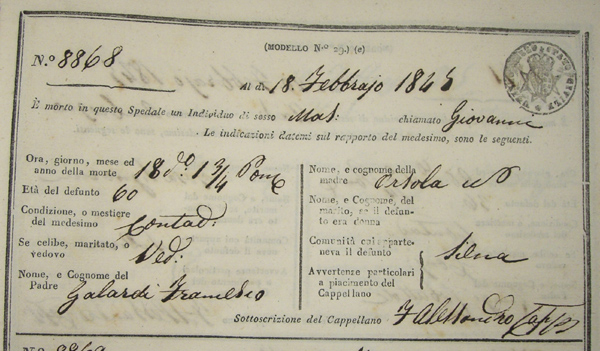 (MODELLO N.º 29.) (e)
N.º 8868
Al dì 18. Febbrajo 1845
È morto in questo Spedale un Individuo di sesso Mas: chiamato Giovanni
. Le indicazioni datemi sul rapporto del medesimo, sono le seguenti.
Ora, giorno, mese ed
anno della morte 18 do 1 3/4 Pom
Età del defunto
60
Condizione, o mestiere
del medesimo Contad:
Se celibe, maritato, o
vedovo Ved:
Nome, e Cognome del
Padre Galardi Francesco
Nome, e cognome della
madre Orsola
Nome, e Cognome, del
marito, se il defun-
to era donna
Comunità cui apparte-
neva il defunto Silna
Avvertenze particolari
a piacimento del
Cappellano
Sottoscrizione del Cappellano F Alessandro
8869